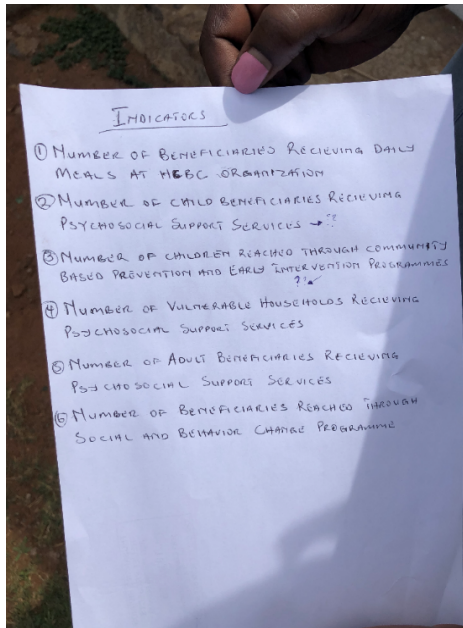 INDICATORS
① NUMBER OF BENEFICIARIES RECIEVING DAILY
MEALS AT HCBC ORGANIZATION
② NUMBER OF CHILD BENEFICIARIES RECIEVING
PSYCHOSOCIAL SUPPORT SERVICES → ??
③ NUMBER OF CHILDREN REACHED THROUGH COMMUNITY
BASED PREVENTION AND EARLY INTERVENTION PROGRAMMES
??
④ NUMBER OF VULNERABLE HOUSEHOLDS RECIEVING
PSYCHOSOCIAL SUPPORT SERVICES
⑤ NUMBER OF ADULT BENEFICIARIES RECIEVING
PSYCHOSOCIAL SUPPORT SERVICES
⑥ NUMBER OF BENEFICIARIES REACHED THROUGH
SOCIAL AND BEHAVIOR CHANGE PROGRAMME